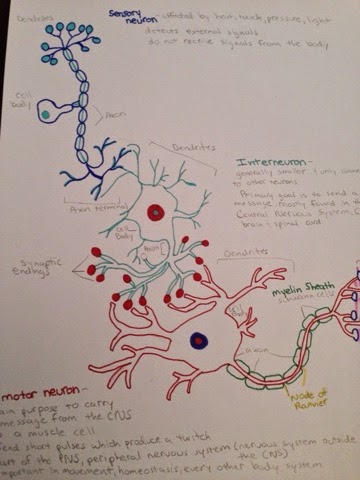 Dendrites
Sensory neuron - affected by heat, touch, pressure, light
detects external signals
do not receive signals from the body
Cell body
Axon
Dendrites
Interneuron -
generally smaller & only
to other neurons
Primary goal is to send
message, mostly found in
Central Nervous System,
brain & spinal cord
Axon terminal
Cell Body
Axon
Synaptic Endings
Dendrites
Cell Body
myelin sheath
schwann cells
axon
Node of Ranvier
motor neuron -
ain purpose to carry
message from the CNS
o a muscle cell
end short pulses which produce a twitch
art of the PNS, peripheral nervous system (nervous system outside
the CNS)
mportant in movement, homeostasis, every other body system